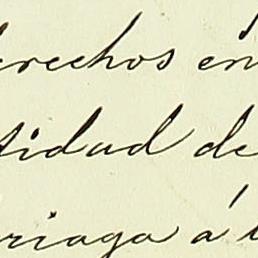 erechos en
tidad de
riaga á